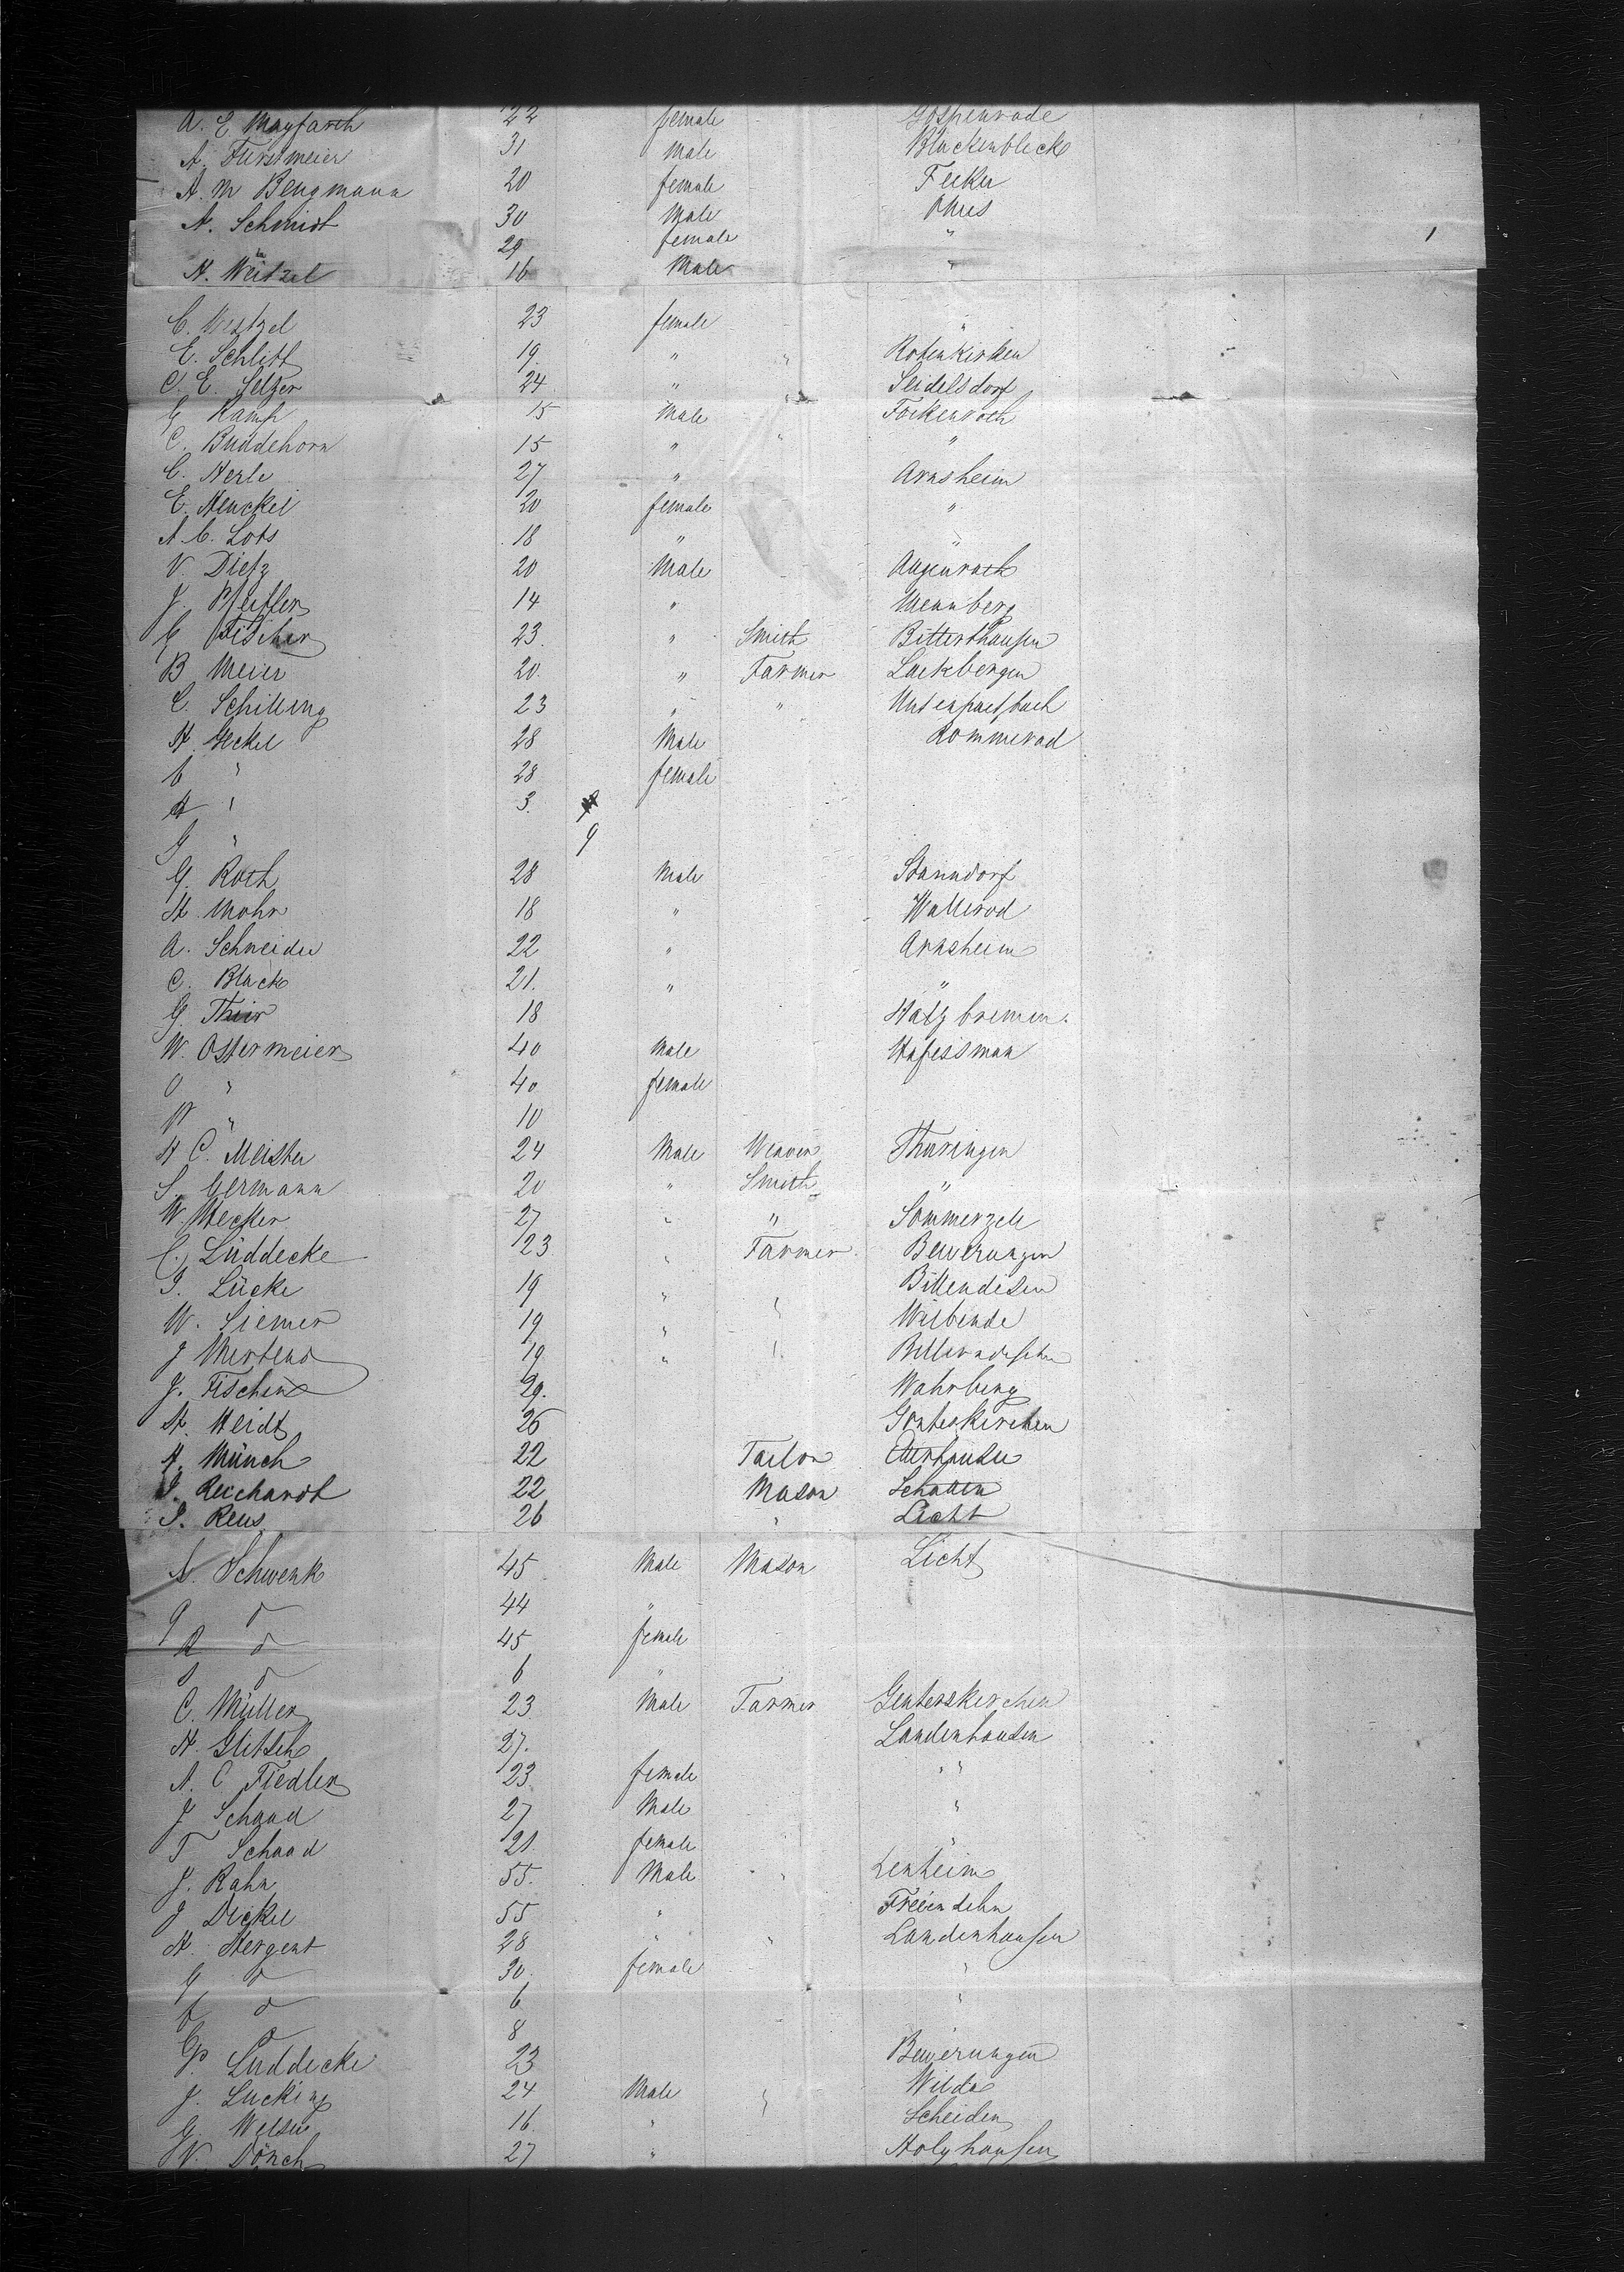 A. E Mayfarth 22 female Gospenrode
A. Furstmeier 31 Male Blackenbleck
A. M Bengmann 20 female Fecker
A. Schmidt 30 Male Ohres
29 female "
H. Weitzel 16 Male "
C. Weitzel 23 female "
E. Schlitt 19 " " Rotenkirken
C. E. Selzer 24 " Seidelsdorf
G Kamp 15 Male Fockenroth
C. Buddehorn 15 " " "
C. Herle 27 " Arnsheim
E. Henckel 20 female "
A. C. Lots 18 " "
V. Dietz 20 Male Augenroth
J. Pfeiffer 14 " Mennberg
G Fischer 23 " Smith Bitterthausen
B Meier 20 " Farmer Lackbergen
C. Schilling 23 " "
H. Heckel 28 Male Rommerod
C " 28 female
H " 3
G " 9
G. Roth 28 Male Stanndorf
H. Mohr 18 " Wallerod
A. Schneider 22 " Arnsheim
C. Black 21. " "
G. Thür 18 Hatzbremen.
W. Ostermeier 40 Male
" 40 female
W " 10
H C. Meister 24 Male Weaver Thuringen
S. Germann 20 " Smith "
W. Hecker 27 " " Sommerzele
C. Lüddecke 23 " Farmer Beverungen
J. Lücke 19 " " Billendesen
W. Siemer 19 " " Wilbende
J Mertens 19 " "
J. Fischer 29. Wahrberg
H. Heidt 26 Gonteskirchen
H. Münch 22 Tailor
J. Reichardt 22 Mason Schotten
S. Reus 26 " Licht
A. Schwenk 45 Male Mason Licht
G d 44 "
R d 45 female
S d 6 "
C. Müller 23 Male Farmer Genterskirchen
H. Glitsch 27. Landenhausen
A. C Fiedler 23 female "
J Schaad 27 Male "
T Schaad 21 female "
J. Rahn 55. Male " Lenheim
J Dickel 55 " Freiendehn
H. Hergent 28 " " Landenhausen
G d 30 female "
C d 6 "
C d 8
P. Luddecke 23 Beverungen
J. Lucking 24 Male " Wilda
G Welsen 16 " Scheiden
W. Dönch 27 " Holzhausen